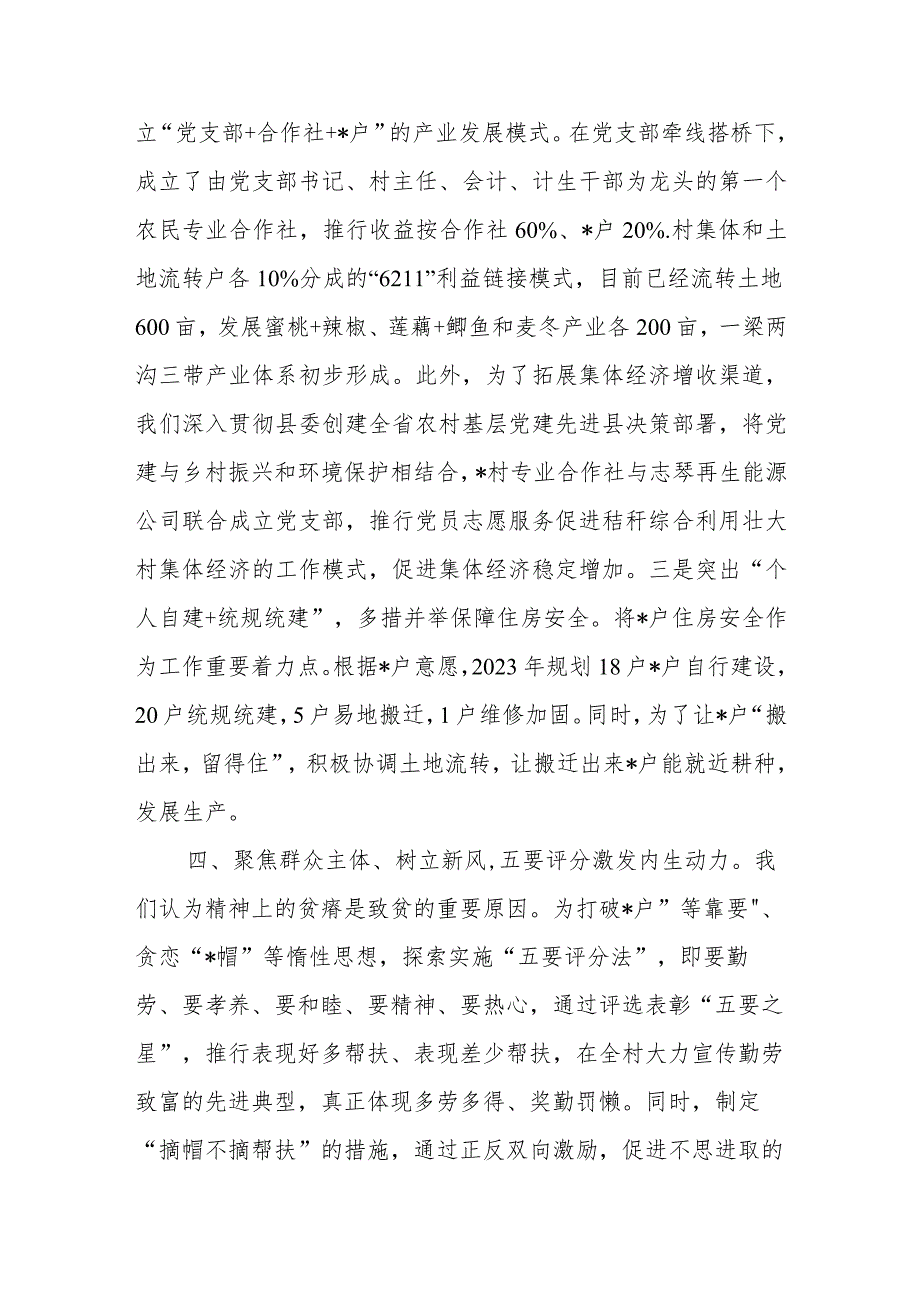 立“党支部+合作社+*户”的产业发展模式。在党支部牵线搭桥下，
成立了由党支部书记、村主任、会计、计生干部为龙头的第一个
农民专业合作社，推行收益按合作社 60%、*户 20%.村集体和土
地流转户各 10%分成的“6211”利益链接模式，目前已经流转土地
600 亩，发展蜜桃+辣椒、莲藕+鲫鱼和麦冬产业各 200 亩，一梁两
沟三带产业体系初步形成。此外，为了拓展集体经济增收渠道，
我们深入贯彻县委创建全省农村基层党建先进县决策部署，将党
建与乡村振兴和环境保护相结合,*村专业合作社与志琴再生能源
公司联合成立党支部，推行党员志愿服务促进秸秆综合利用壮大
村集体经济的工作模式，促进集体经济稳定增加。三是突出“个
人自建+统规统建”，多措并举保障住房安全。将*户住房安全作
为工作重要着力点。根据*户意愿,2023 年规划 18 户*户自行建设，
20 户统规统建,5 户易地搬迁,1 户维修加固。同时,为了让*户“搬
出来，留得住”，积极协调土地流转，让搬迁出来*户能就近耕种，
发展生产。
四、聚焦群众主体、树立新风,五要评分激发内生动力。我
们认为精神上的贫瘠是致贫的重要原因。为打破*户”等靠要"、
贪恋“*帽”等惰性思想，探索实施“五要评分法”，即要勤
劳、要孝养、要和睦、要精神、要热心，通过评选表彰“五要之
星”，推行表现好多帮扶、表现差少帮扶，在全村大力宣传勤劳
致富的先进典型，真正体现多劳多得、奖勤罚懒。同时，制定
“摘帽不摘帮扶”的措施，通过正反双向激励，促进不思进取的